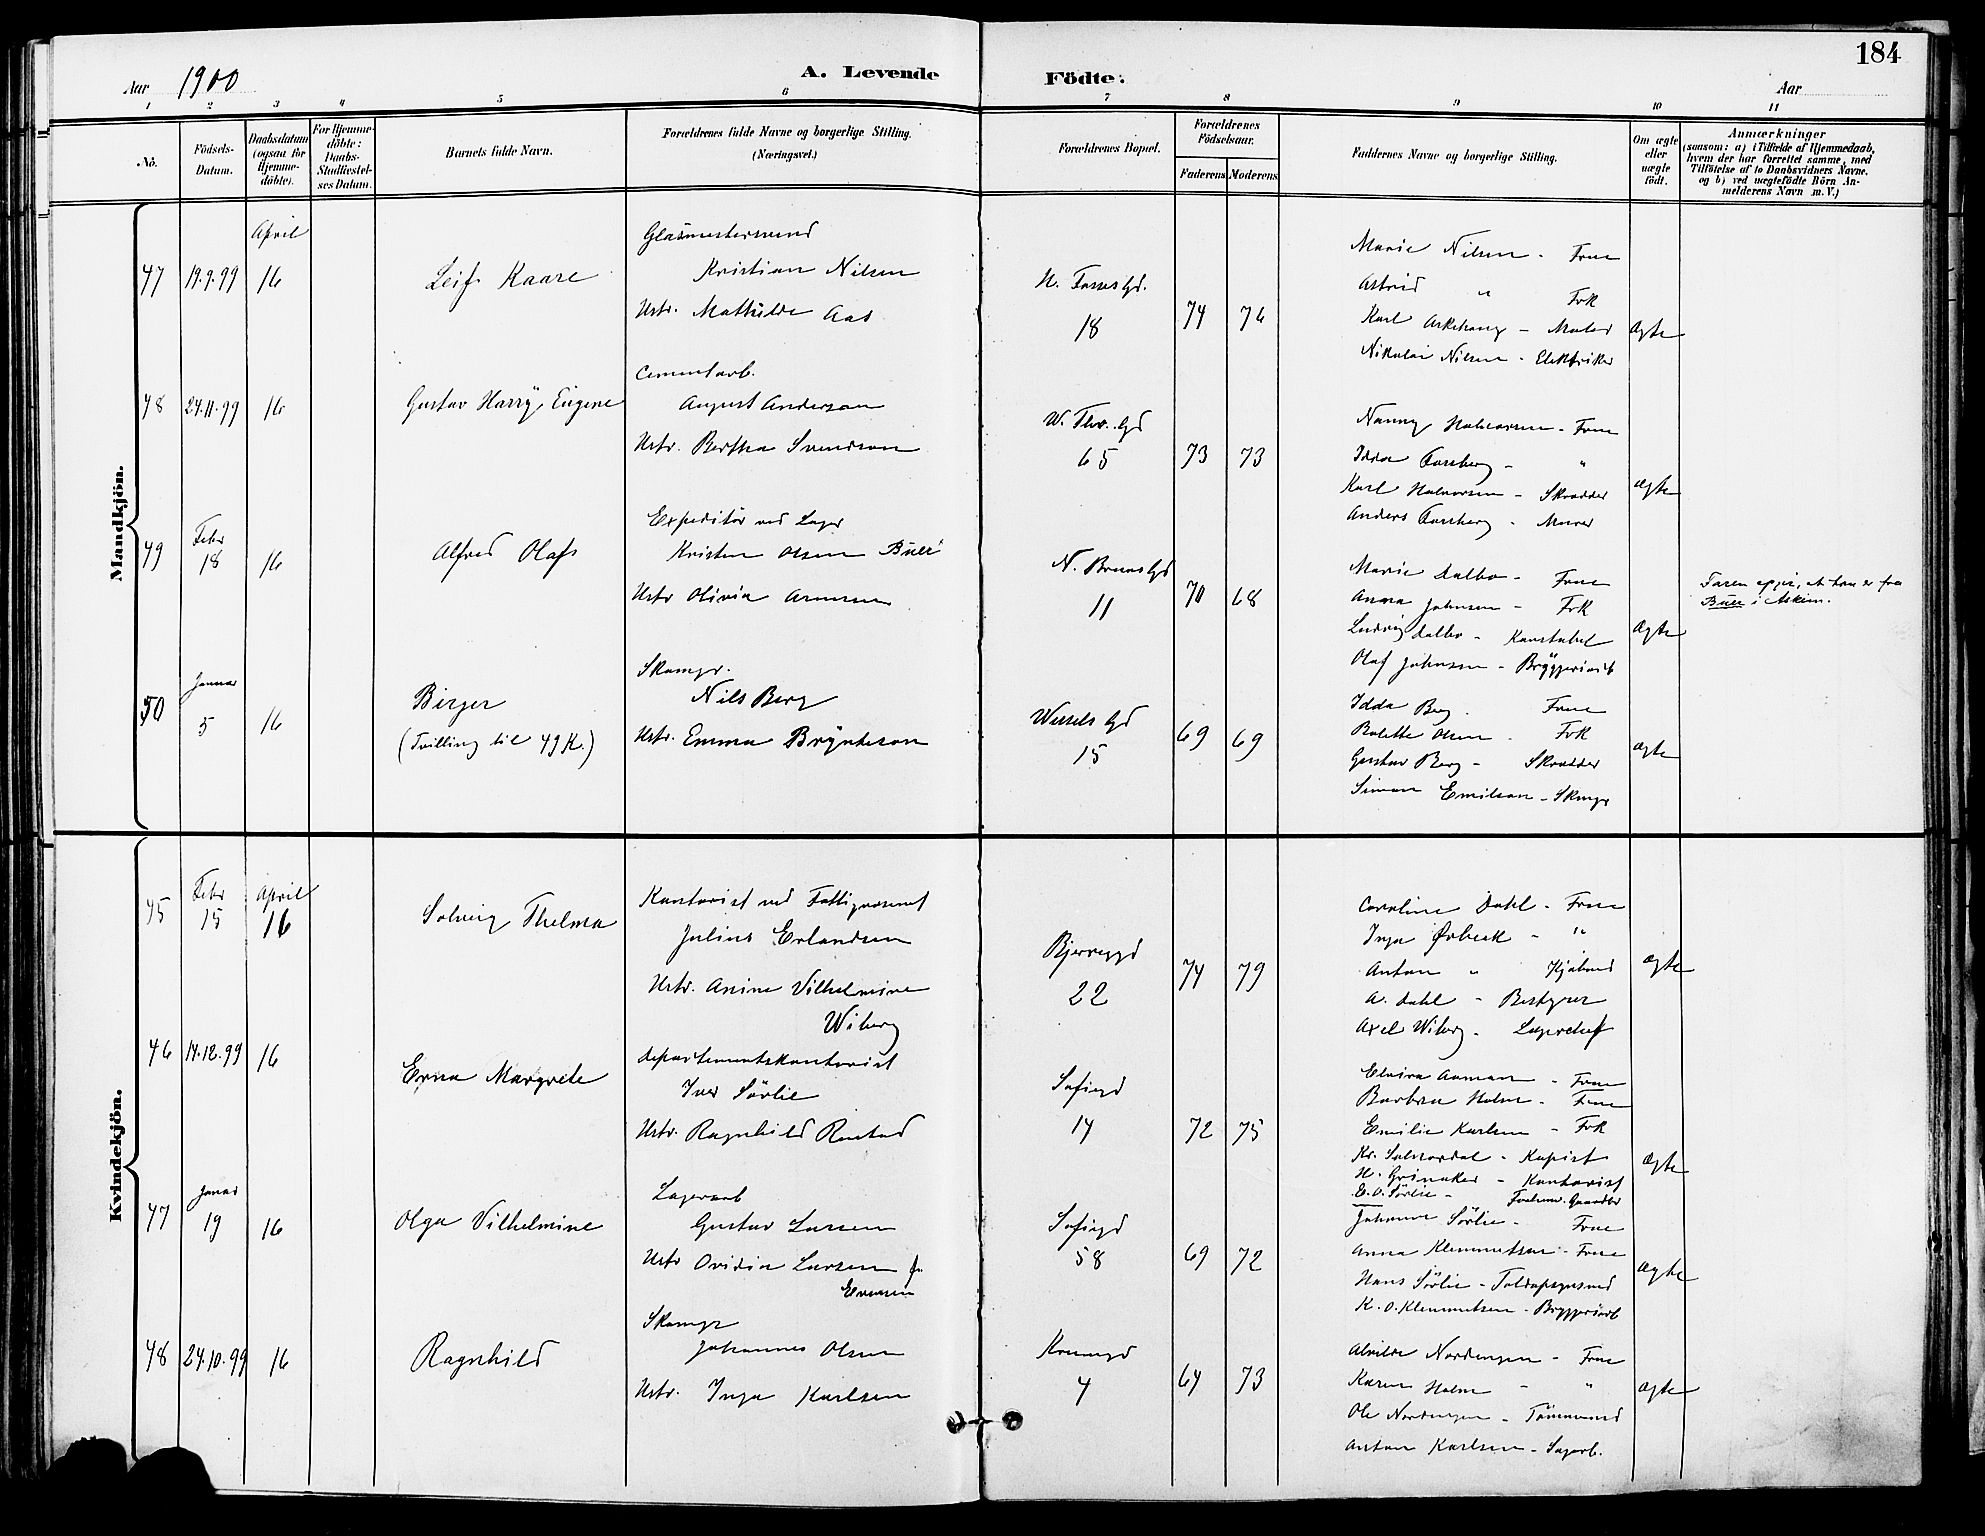 184
Aar 1900 A. Levende Födte. Aar
1 2 3 4 5 6 7 8 9 10 11
No.
Födsels-Datum.
Daabsdatum (ogsaa for Hjemme-döbte).
For Hjemme-döbte: Daabs-Stadfæstel-ses Datum.
Barnets fulde Navn.
Forældrenes fulde Navne og borgerlige Stilling.
(Næringsvei.)
Forældrenes Bopæl.
Forældrenes Födselsaar.
Faderens Moderens
Faddernes Navne og borgerlige Stilling.
Om ægte eller uægte födt.
Anmærkninger
(saasom: a) i Tilfælde af Hjemmedaab, hvem der har forrettet samme, med Tilföielse af to Daabsvidners Navne. og b) ved uægtefödte Börn An-melderens Navn m. V.)
Mandkjön.
April
47 19.9.99 16 Leif Kaare
Glasmestersvend
Kristian Nilsen
Hstr. Mathilde Aas
N. Fossesgd.
18 74 76
Marie Nilsen - Frue
Astrid " Frk
Karl Askehaug - Maler
Nikolai Nilsen - Elektriker
Ægte
48 24.11.99 16 Gustav Harry Eugene
Cementarb.
August Anderson
Hstr. Bertha Svendson
W. Thr. Gd
65 73 73
Nanny Halvorsen - Frue
Idda Forsberg - "
Karl Halvorsen - Skrædder
Anders Forsberg - Murer
Ægte
49 Febr 18 16 Alfred Olaf
Expeditör ved Lager
Kristen Olsen Buer
Hstr Olivia Arnesen
N. Brunsgd
11 70 68
Marie Dalbo - Frue
Anna Johnsen - Frk
Ludvig Dalbo - Konstabel
Olaf Johnsen - Bryggeriarb
Ægte
Faren opgir, at han er fra
Buer i Askim.
50 Januar 5 16 Birger
(Tvilling til 49 K.)
Skomgr.
Nils Berg
Hstr. Emma Brynteson
Wessels Gd
15 69 69
Idda Berg. Frue
Bolette Olsen - Frk
Gustav Berg - Skrædder
Simon Emilson - Skmgr
Ægte
Kvindekjön.
45 Febr 15 April 16 Solveig Thelma
Kontorist ved Fattigvæsenet
Julius Erlandsen
Hstr. Anine Vilhelmine
Wiberg
Bjerregd
22 74 79
Caroline Dahl - Frue
Inga Ørbeck - "
Anton " Kjøbmd
A. Dahl - Bestyrer
Axel Wiberg - Lagerchef
Ægte
46 14.12.99 16 Erna Margrete
Departementskontorist
Iver Sörlie
Hstr. Ragnhild Rustad
Sofiegd
14 72 75
Elvira Aaman - Frue
Barbra Holm - Frue
Emilie Karlsen - Frk
Kr. - Kopist
H. Grinaker - Kontorist
E.O. Sörlie -
Ægte
47 Januar 19 16 Olga Vilhelmine
Lagerarb
Gustav Larsen
Hstr Ovidia Larsen f.
Evensen
Sofiegd
58 69 72
Johanne Sörlie - Frue
Anna Klemmetsen - Frue
Hans Sörlie - Toldopsynsmd
K.O. Klemmetsen - Bryggeriarb
Ægte
48 24.10.99 16 Ragnhild
Skomgr
Johannes Olsen
Hstr. Inga Karlsen
Krumgd
4 64 73
Alvilde Nordengen - Frue
Karen Holm - "
Ole Nordengen - Tömmermd
Anton Karlsen - Sagarb.
Ægte